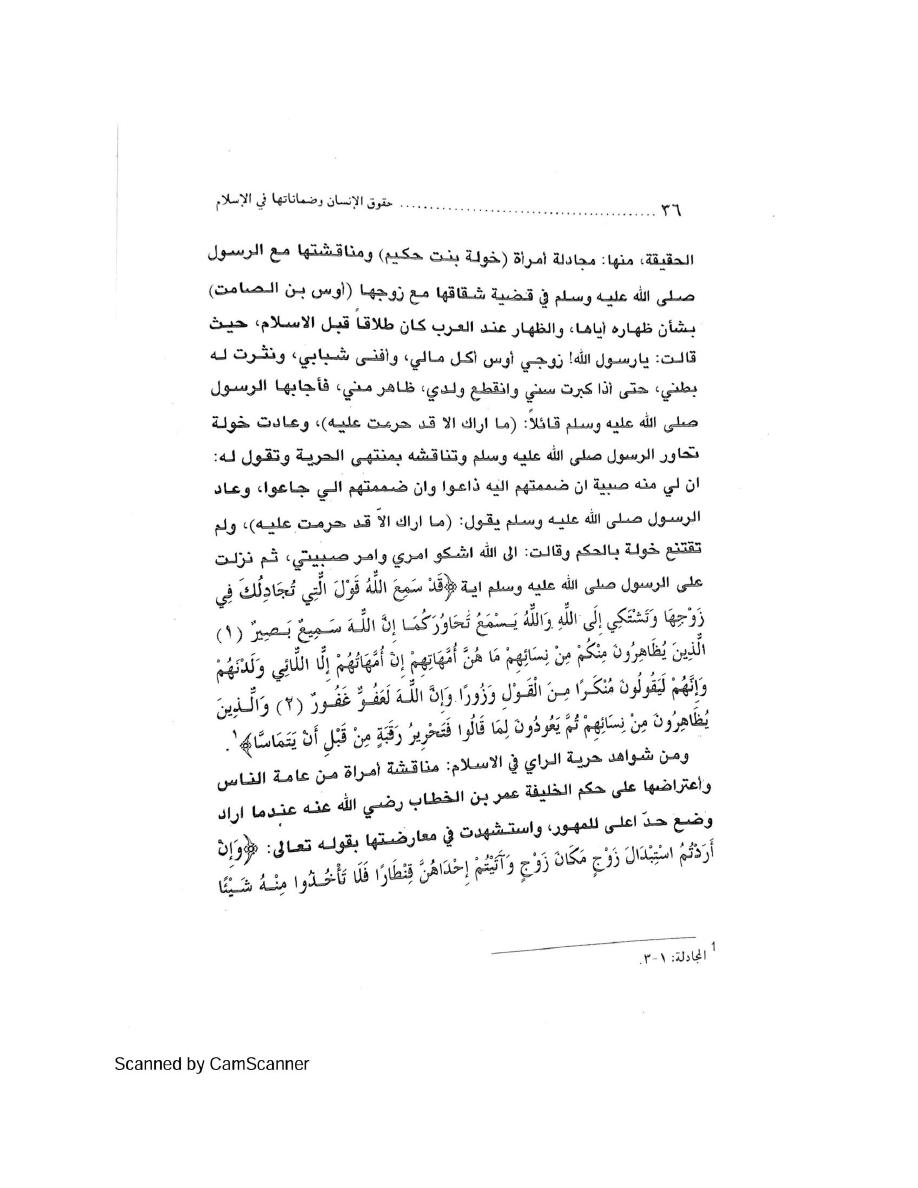 ٣٦ ............................................ حقوق الإنسان وضماناتها في الإسلام
الحقيقة، منها: مجادلة أمرأة (خولة بنت حكيم) ومناقشتها مع الرسول
صلى الله عليه وسلم في قضية شقاقها مع زوجها (أوس بن الصامت)
بشأن ظهاره أياها، والظهار عند العرب كان طلاقاً قبل الاسلام، حيث
قالت: يارسول الله! زوجي أوس أكل مالي، وأفنى شبابي، ونثرت له
بطني، حتى أذا كبرت سني وانقطع ولدي، ظاهر مني، فأجابها الرسول
صلى الله عليه وسلم قائلاً: (ما اراك الا قد حرمت عليه)، وعادت خولة
تحاور الرسول صلى الله عليه وسلم وتناقشه بمنتهى الحرية وتقول له:
ان لي منه صبية ان ضممتهم اليه ذاعوا وان ضممتهم الي جاعوا، وعاد
الرسول صلى الله عليه وسلم يقول: (ما اراك الاّ قد حرمت عليه)، ولم
تقتنع خولة بالحكم وقالت: الى الله اشكو امري وامر صبيتي، ثم نزلت
على الرسول صلى الله عليه وسلم اية ﴿قَدْ سَمِعَ اللَّهُ قَوْلَ الَّتِي تُجَادِلُكَ فِي
زَوْجِهَا وَتَشْتَكِي إِلَى اللَّهِ وَاللَّهُ يَسْمَعُ تَحَاوُرَكُمَا إِنَّ اللَّهَ سَمِيعٌ بَصِيرٌ (١)
الَّذِينَ يُظَاهِرُونَ مِنْكُمْ مِنْ نِسَائِهِمْ مَا هُنَّ أُمَّهَاتِهِمْ إِنْ أُمَّهَاتُهُمْ إِلَّا اللَّائِي وَلَدْنَهُمْ
وَإِنَّهُمْ لَيَقُولُونَ مُنْكَرًا مِنَ الْقَوْلِ وَزُورًا وَإِنَّ اللَّهَ لَعَفُوٌّ غَفُورٌ (٢) وَالَّذِينَ
يُظَاهِرُونَ مِنْ نِسَائِهِمْ ثُمَّ يَعُودُونَ لِمَا قَالُوا فَتَحْرِيرُ رَقَبَةٍ مِنْ قَبْلِ أَنْ يَتَمَاسَّا﴾¹.
ومن شواهد حرية الراي في الاسلام: مناقشة أمراة من عامة الناس
وأعتراضها على حكم الخليفة عمر بن الخطاب رضي الله عنه عندما اراد
وضع حدّ اعلى للمهور، واستشهدت في معارضتها بقوله تعالى: ﴿وَإِنْ
أَرَدْتُمُ اسْتِبْدَالَ زَوْجٍ مَكَانَ زَوْجٍ وَآتَيْتُمْ إِحْدَاهُنَّ قِنْطَارًا فَلَا تَأْخُذُوا مِنْهُ شَيْئًا
¹ المجادلة: ١-٣.
Scanned by CamScanner